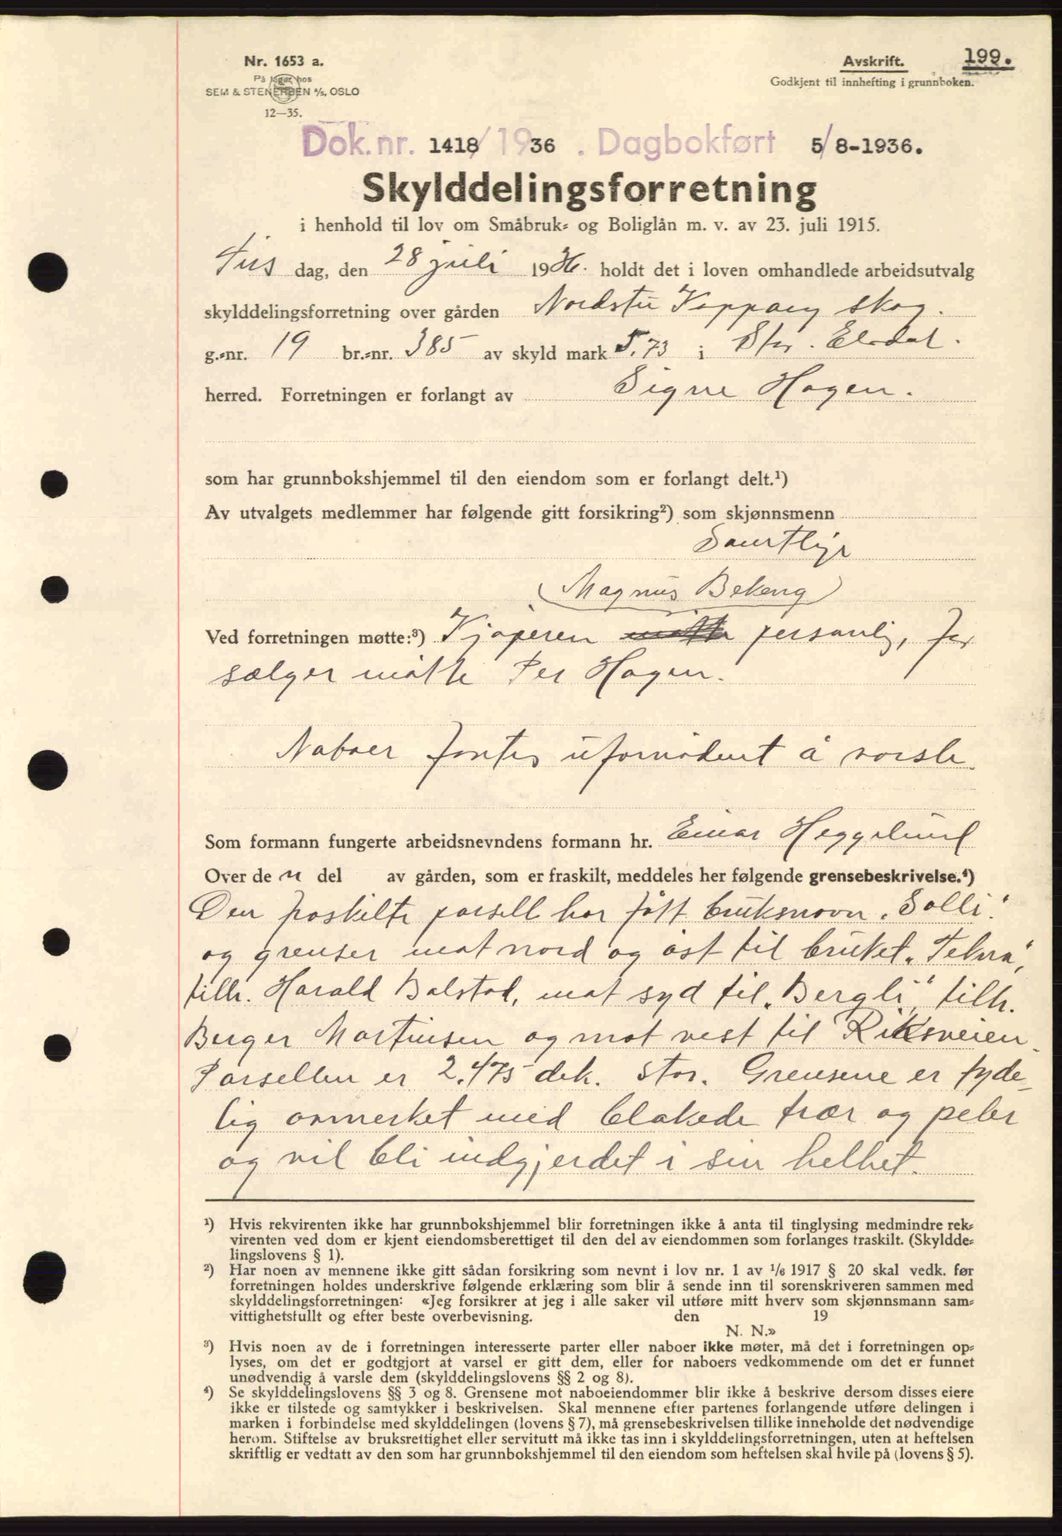 Nr. 1653 a.
På lager hos
SEM & STENERSEN A/S, OSLO
12—35.
Avskrift.
199.
Godkjent til innhefting i grunnboken.
Dok.nr. 1418/1936. Dagbokført 5/8-1936.
Skylddelingsforretning
i henhold til lov om Småbruk- og Boliglån m. v. av 23. juli 1915.
Tirsdag, den 28 juli 1936. holdt det i loven omhandlede arbeidsutvalg
skylddelingsforretning over gården Nordstu Koppang skog.
g.-nr. 19 br.-nr. 385 av skyld mark 5,73 i Stor-Elvdal.
herred. Forretningen er forlangt av Signe Hagen.
som har grunnbokshjemmel til den eiendom som er forlangt delt.¹)
Av utvalgets medlemmer har følgende gitt forsikring²) som skjønnsmenn
Samtlige
(Magnus Bekeng)
Ved forretningen møtte:³) Kjøperen personlig, for
sælger møtte Per Hagen.
Naboer fantes ufornødent å varsle.
Som formann fungerte arbeidsnevndens formann hr. Einar Heggelund
Over den del av gården, som er fraskilt, meddeles her følgende grensebeskrivelse.⁴)
Den fraskilte parsell har fått bruksnavn „Solli“
og grenser mot nord og øst til bruket „
tilh. Harald Balstad, mot syd til „Bergli“, tilh.
Birger Martinsen og mot vest til Riksveien.
Parsellen er 2.475 dek. stor. Grensene er tyde-
lig avmerket med blekede trær og peler
og vil bli indgjerdet i sin helhet.
¹) Hvis rekvirenten ikke har grunnbokshjemmel blir forretningen ikke å anta til tinglysing medmindre rek-
virenten ved dom er kjent eiendomsberettiget til den del av eiendommen som forlanges fraskilt. (Skyldde-
lingslovens § 1).
²) Har noen av mennene ikke gitt sådan forsikring som nevnt i lov nr. 1 av 1/6 1917 § 20 skal vedk. før
forretningen holdes underskrive følgende erklæring som blir å sende inn til sorenskriveren sammen med
skylddelingsforretningen: «Jeg forsikrer at jeg i alle saker vil utføre mitt hverv som skjønnsmann sam-
vittighetsfullt og efter beste overbevisning. den 19
N. N.»
³) Hvis noen av de i forretningen interesserte parter eller naboer ikke møter, må det i forretningen op-
lyses, om det er godtgjort at varsel er gitt dem, eller for naboers vedkommende om det er funnet
unødvendig å varsle dem (skylddelingslovens §§ 2 og 8).
⁴) Se skylddelingslovens §§ 3 og 8. Grensene mot naboeiendommer blir ikke å beskrive dersom disses eiere
ikke er tilstede og samtykker i beskrivelsen. Skal mennene efter partenes forlangende utføre delingen i
marken i forbindelse med skylddelingen (lovens § 7), må grensebeskrivelsen tillike inneholde det nødvendige
herom. Stiftelse av bruksrettighet eller servitutt må ikke tas inn i skylddelingsforretningen, uten at heftelsen
skriftlig er vedtatt av den som har grunnbokshjemmel til den eiendom som heftelsen skal hvile på (lovens § 5).